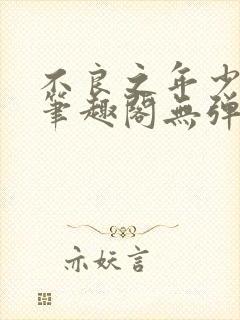 不良之年少
筆趣閣無弹
亦妖言